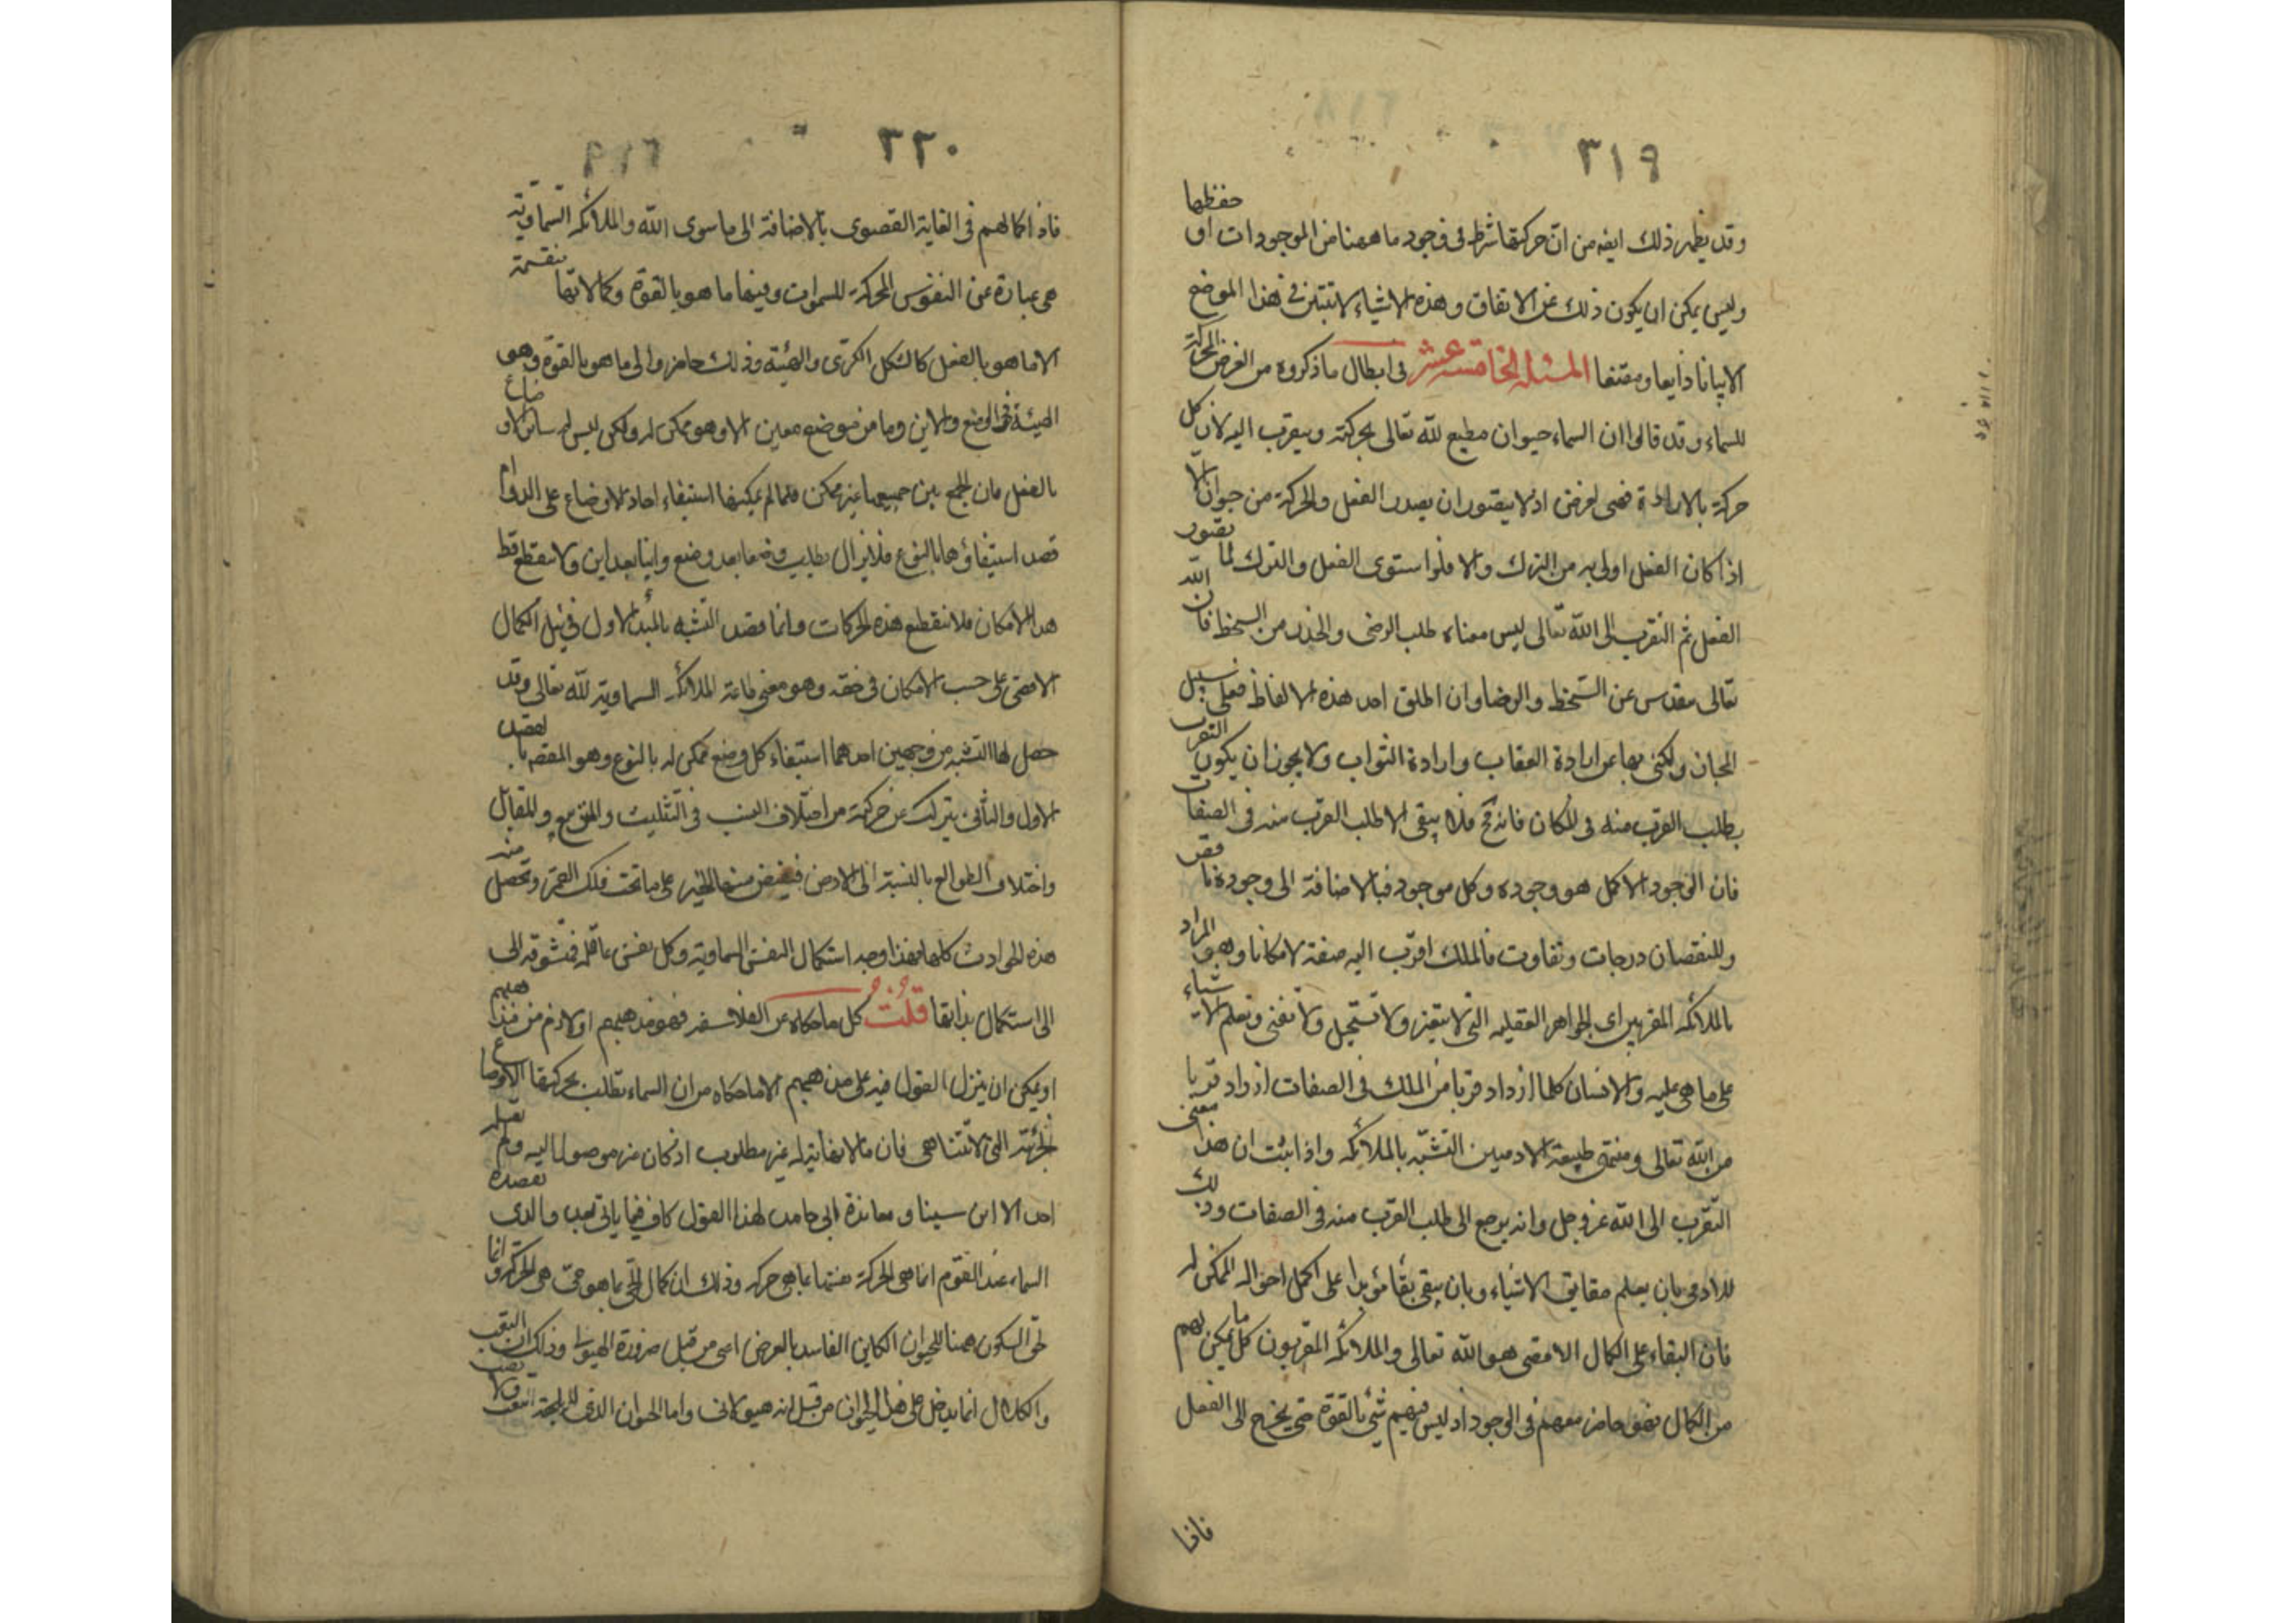 ٣١٩
وقد يظهر ذلك ايضه من ان حركتها شرط فى وجود ما ههنا من الموجودات او حفظها
وليس يمكن ان يكون ذلك عن الاتفاق وهذه الاشياء لا تتبين فى هذا الموضع
الا بيانا ذايعا ومقنعا المسئلة الخامسة عشر فى ابطال ما ذكروه من الغرض المحرك
للسماء وقد قالوا ان السماء حيوان مطيع لله تعالى بحركته ويتقرب اليه لان كل
حركة بالارادة فهى لغرض اذ لا يتصور ان يصدر الفعل والحركة من حيوان الا
اذا كان الفعل اولى به من الترك والا فلو استوى الفعل والترك لما تصور
الفعل ثم التقرب الى الله تعالى ليس معناه طلب الرضى والحذر من السخط فان الله
تعالى مقدس عن السخط والرضا وان اطلق احد هذه الالفاظ فعلى سبيل
المجاز ولكنى بها عن ارادة العقاب وارادة الثواب ولا يجوز ان يكون التقرب
بطلب القرب منه فى المكان فانه مح فلا يبقى الا طلب القرب منه فى الصفات
فان الوجود الاكمل هو وجوده وكل موجود فبالاضافة الى وجوده ناقص
وللنقصان درجات وتفاوت فالملك اقرب اليه صفة لا مكانا وهو المراد
بالملائكه المقربين اى الجواهر العقليه التى لا تتغير ولا تستحيل ولا تفنى وتعلم الاشياء
على ما هى عليه والانسان كلما ازداد قربا من الملك فى الصفات ازداد قربا
من الله تعالى ومنتهى طبيعة الادميين التشبه بالملائكه واذا ثبت ان هذا معنى
التقرب الى الله عز وجل وانه يرجع الى طلب القرب منه فى الصفات وذلك
للادمى بان يعلم حقايق الاشياء وبان يبقى بقأ مؤبدا على اكمل احواله الممكن له
فان البقاء على الكمال الاقصى هو الله تعالى والملائكه المقربون كل ما يمكن لهم
من الكمال فهو حاضر معهم فى الوجود اذ ليس فيهم شئ بالقوة حتى يخرج الى الفعل
فاذا
٣٢٠
فاذا كمالهم فى الغاية القصوى بالاضافة الى ما سوى الله والملائكه السماوية
هى عبارة عن النفوس المحركة للسموات وفيها ما هو بالقوة وكمالاتها منقسمة
الا ما هو بالفعل كالشكل الكرى والهيئة وذلك حاضر والى ما هو بالقوة وهو
الهيئة فى الوضع والاين وما من موضع معين الا وهو ممكن له ولكن ليس له ساير الاوضاع
بالفعل فان الجمع بين جميعها غير ممكن فلما لم يمكنها استيفاء احاد الاوضاع على الدوام
قصد استيفاؤها بالنوع فلا يزال يطلب وضعا بعد وضع واينا بعد اين ولا ينقطع قط
هذا الامكان فلا تنقطع هذه الحركات وانما قصد التشبه بالمبدأ الاول فى نيل الكمال
الاقصى على حسب الامكان فى حقه وهو معنى طاعة الملائكه السماوية لله تعالى وقد
حصل لها التشبه من وجهين احدهما استيفاء كل وضع ممكن له بالنوع وهو المقصد بالقصد
الاول والثانى يترتب عن حركته من اختلاف النسب فى التثليث والتربيع والمقابله
واختلاف الطوالع بالنسبة الى الارض فيفيض منها الخير على ما تحت فلك القمر وتحصل منه
هذه الحوادث كلها فهذا وجه استكمال النفس السماوية وكل نفس عاقله فتشوقه الى
الى استكمال بذاتها قلت كل ما حكاه عن الفلاسفه فهو مذهبهم او لازم من مذاهبهم
او يمكن ان ينزل القول فيه على مذهبهم الا ما حكاه من ان السماء تطلب بحركتها الاوضاع
الجزئية التى لا تتناهى فان ما لا نهاية له غير مطلوب اذ كان غير موصول اليه ولم يقله
احد الا ابن سينا ومعاندة ابى حامد لهذا القول كاف فيما ياتى بعد والذى تقصده
السماء عند القوم انما هى الحركة نفسها بما هى حركه وذلك ان كمال الحى بما هو حى هى الحركة وانما
لحق السكون ههنا للحيوان الكاين الفاسد بالعرض اى من قبل ضرورة الهيولى وذلك ان التعب
والكلال انما يدخل على هذا الحيوان من قبل انه هيولانى واما الحيوان الذى لا يلحقه تعب ولا